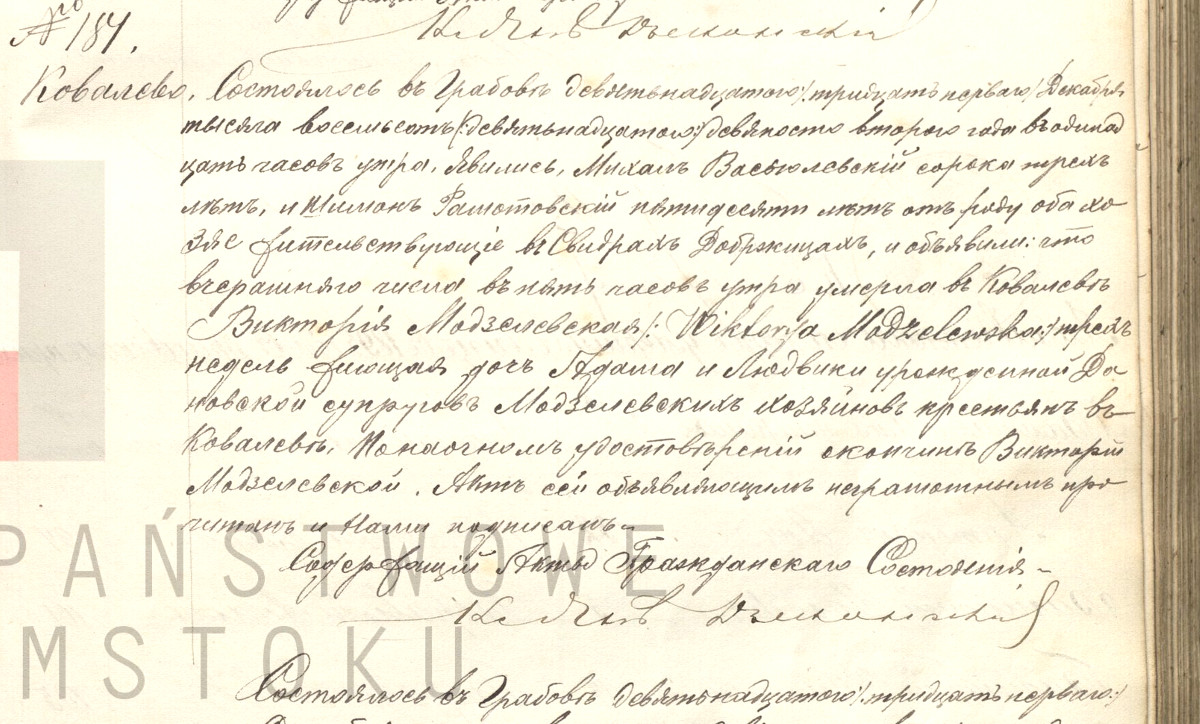 № 184.
К. Янъ
Ковалево. Состоялось въ Грабовѣ девятьнадцатого /: тридцать перваго / Декабря
тысяча восемьсотъ /: девятьнадцатого :/ девяносто второго года въ одинад
цать часовъ утра. Явились, Михалъ Васьюлевскій сорока трехъ
лѣтъ, и Шимонъ пятидесяти лѣтъ отъ роду оба хо
зяе жительствующіе въ Свидрахъ Добржицахъ, и объявили: что
вчерашняго числа въ пять часовъ утра умерла въ Ковалевѣ
Викторія Модзелевская /: Wiktorya Modzelewska :/ трехъ
недель жиющая дочь Адама и Людвики урожденной Да
новской супруговъ Модзелевскихъ хозяйновъ крестьянъ въ
Ковалевѣ. По наочномъ удостовѣреній скончинѣ Викторіи
Модзелевской. Актъ сей объявляющимъ неграмотнымъ про
читанъ и Нами подписанъ.
Содержащій Акты Гражданскаго Состоянія.
К. Янъ
Состоялось въ Грабовѣ девятьнадцатого /: тридцать перваго :/
PAŃSTWOWE
MSTOKU